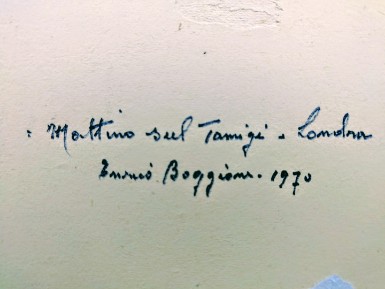 : Mattino sul Tamigi - Londra
Enrico Boggione - 1970